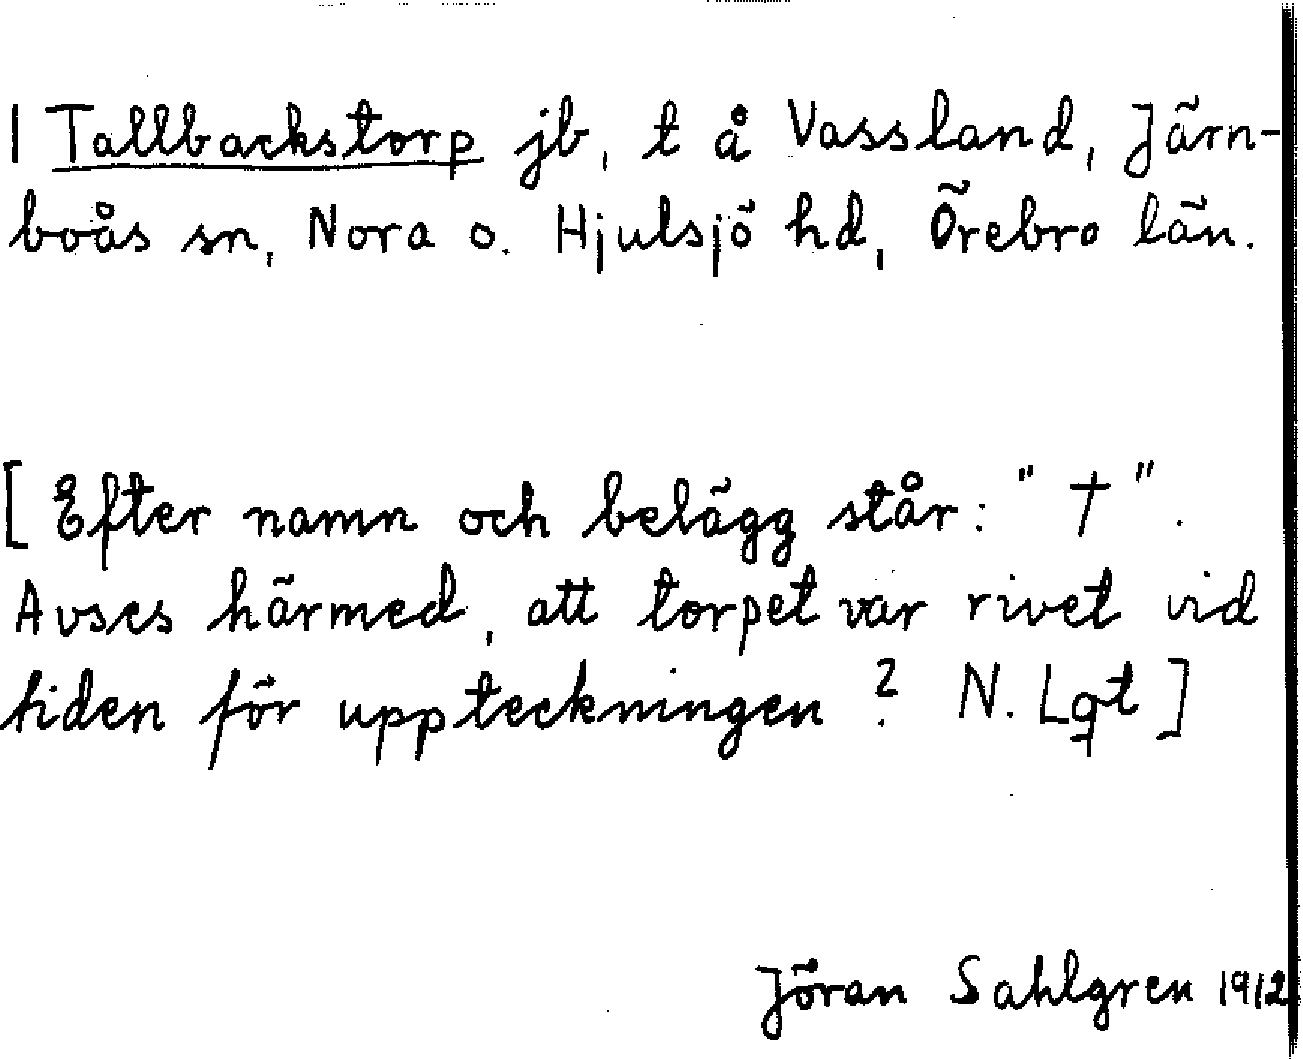 | Tallbackstorp jb, t å Vassland, Järn-
boås sn, Nora o. Hjulsjö hd, Örebro län.
[Efter namn och belägg står: "†".
Avses härmed, att torpet var rivet vid
tiden för uppteckningen? N. Lqt]
Jöran Sahlgren 1912